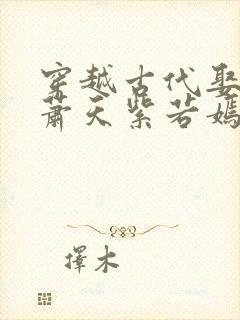 穿越古代娶
萧天紫若嫣
擇木